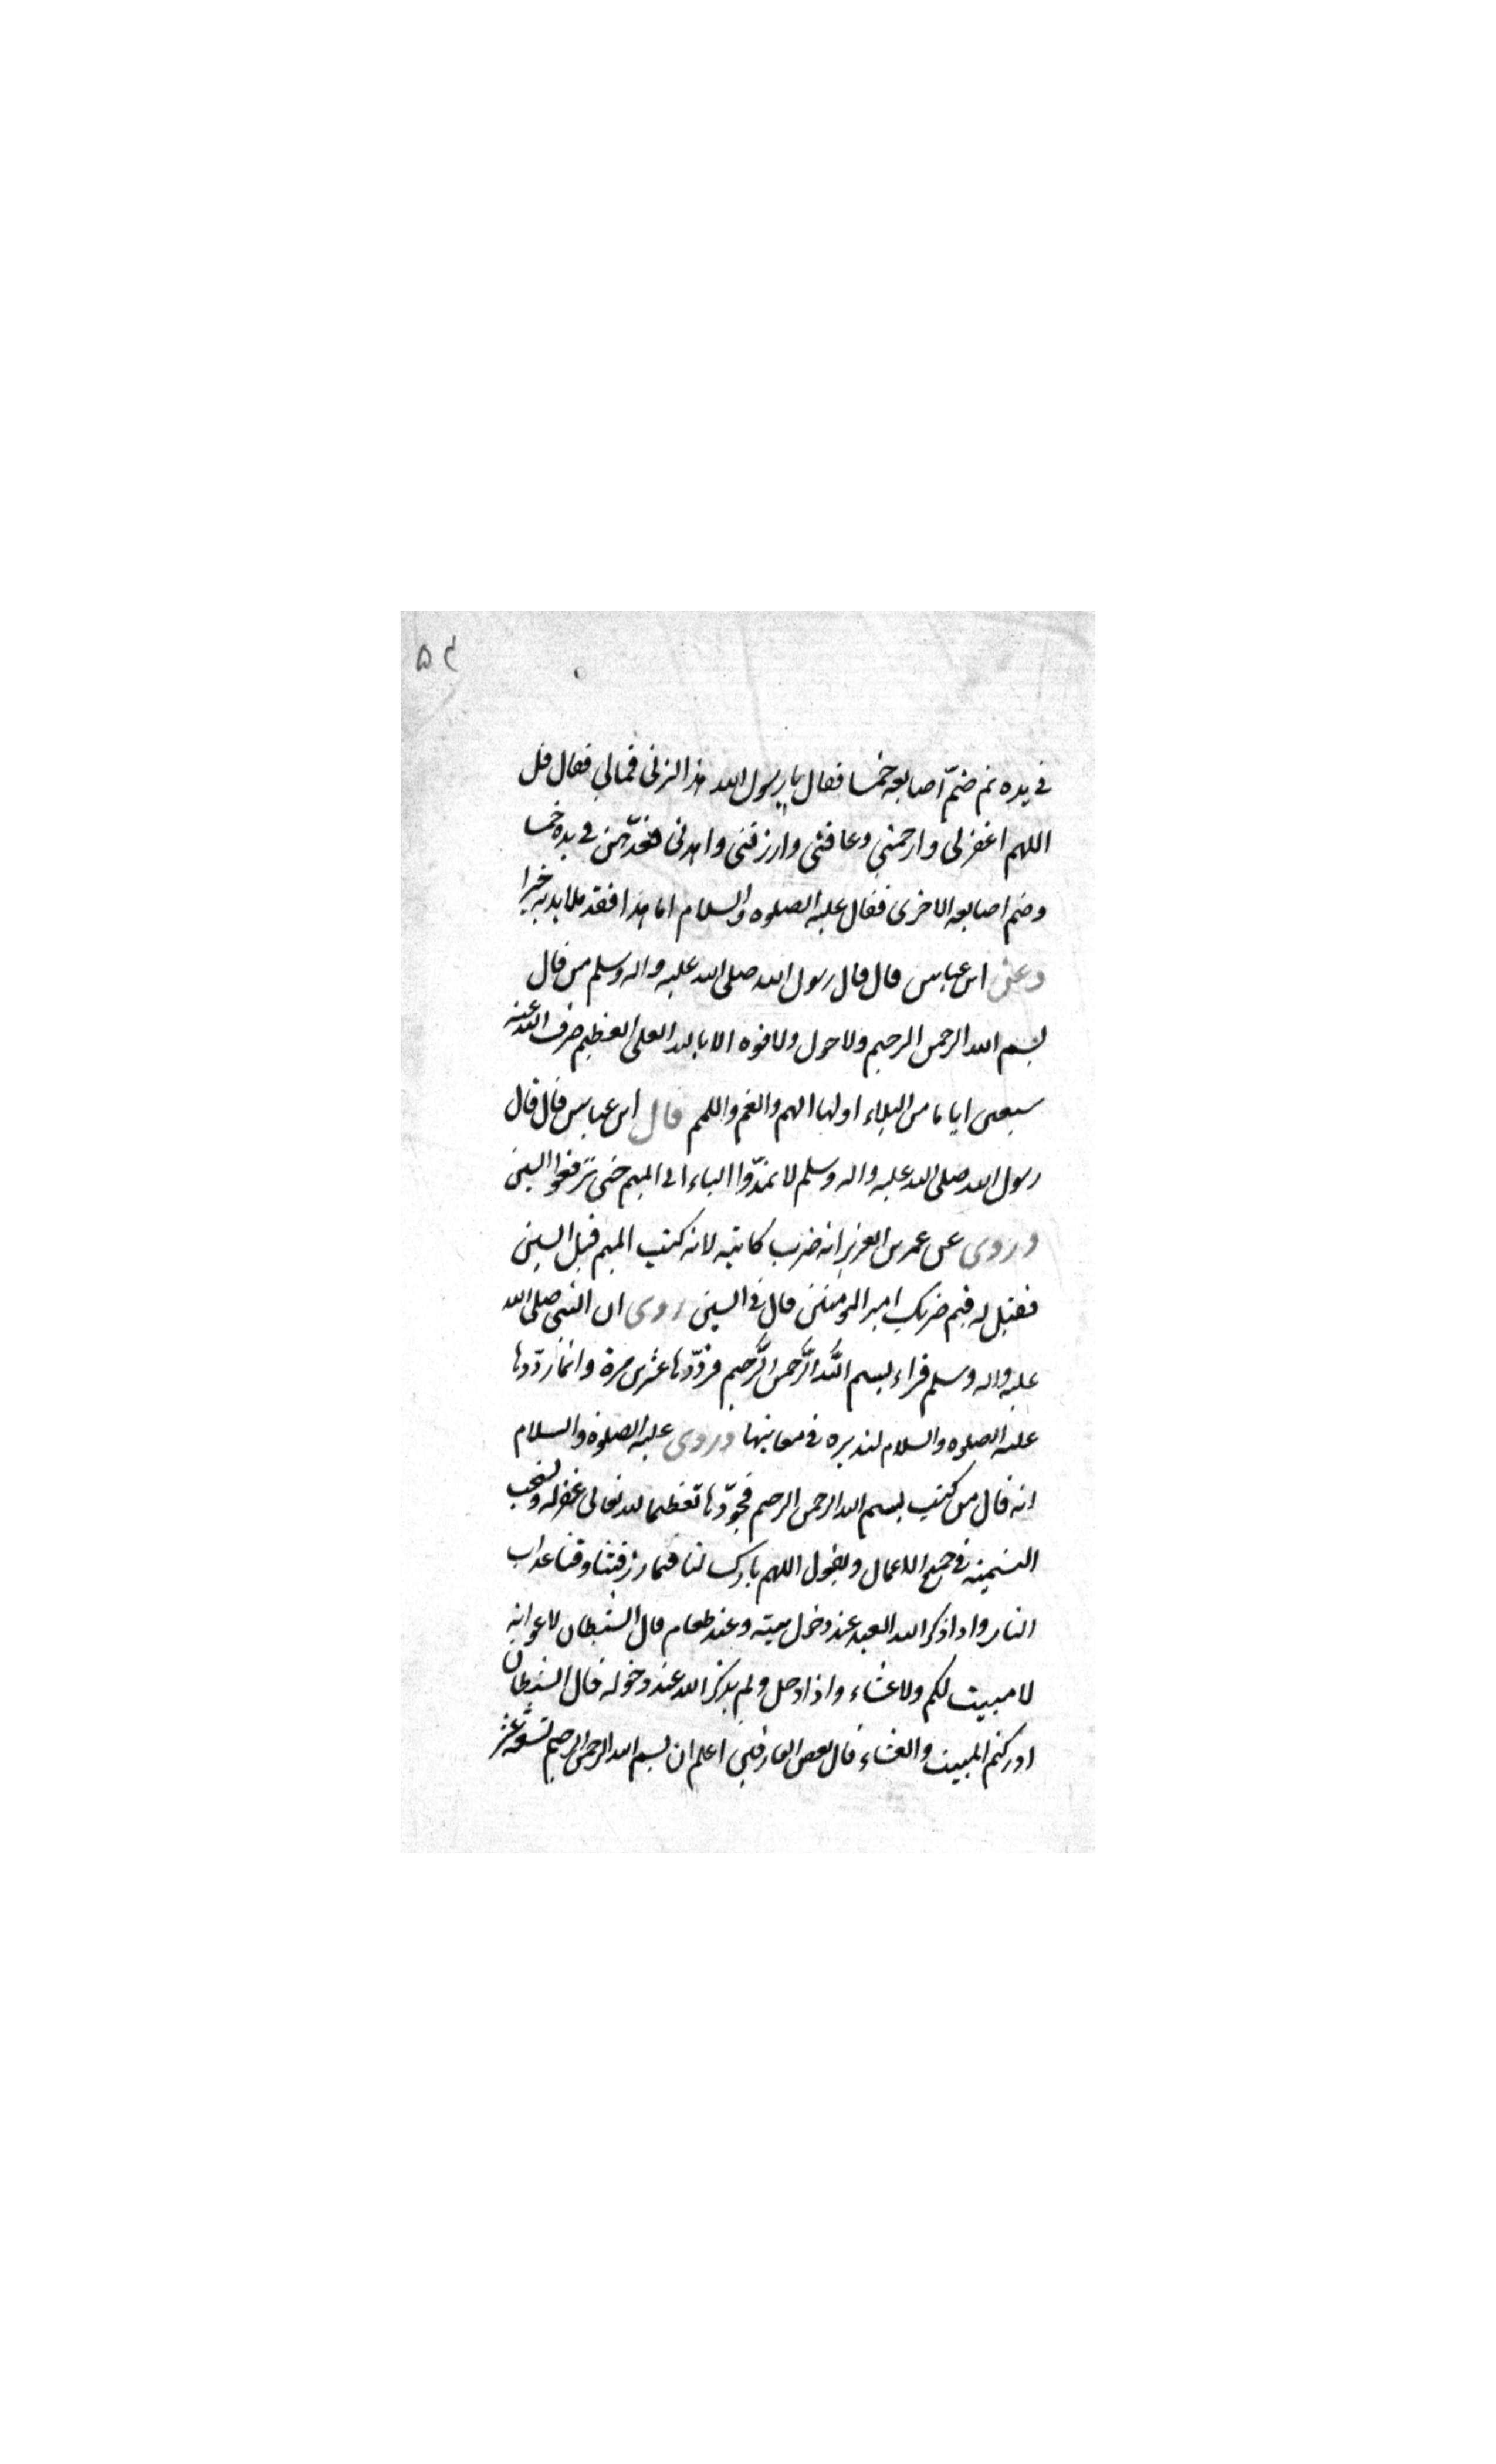 ۵۴
في يده ثم ضمّ اصابعه خمسا فقال يا رسول الله هذا لربي فمالي فقال قل
اللهم اغفر لي وارحمني وعافني وارزقني واهدني فعدّهن في يده خمسا
وضم اصابعه الاخرى فقال عليه الصلوه والسلام اما هذا فقد ملا يديه خيرا
وعن ابن عباس قال قال رسول الله صلى الله عليه واله وسلم من قال
بسم الله الرحمن الرحيم ولا حول ولا قوه الا بالله العلي العظيم صرف الله عنه
سبعين ايا ما من البلاء اولها الهم والغم واللمم قال ابن عباس قال قال
رسول الله صلى الله عليه واله وسلم لا تمدّوا الباء الى الميم حتى ترفعوا السين
وروى عن عمر بن العزيز انه ضرب كاتبه لانه كتب الميم قبل السين
فقيل له فيم ضربك امير المؤمنين قال في السين روى ان النبي صلى الله
عليه واله وسلم قراء بسم الله الرَّحمن الرَّحيم فردّدها عشرين مرة وانما ردّدها
عليه الصلوه والسلام لتدبره في معانيها وروى عليه الصلوة والسلام
انه قال من كتب بسم الله الرحمن الرحيم فجوّدها تعظيما لله تعالى غفر له وتستحب
التسميه في جميع الاعمال ويقول اللهم بارك لنا فيما رزقتنا وقنا عذاب
النار واذا ذكر الله العبد عند دخول بيته وعند طعام قال الشيطان لاعوانه
لا مبيت لكم ولا عشاء واذا دخل ولم يذكر الله عند دخوله قال الشيطان
ادركتم المبيت والعشاء قال بعض العارفين اعلم ان بسم الله الرحمن الرحيم تسعة عشر